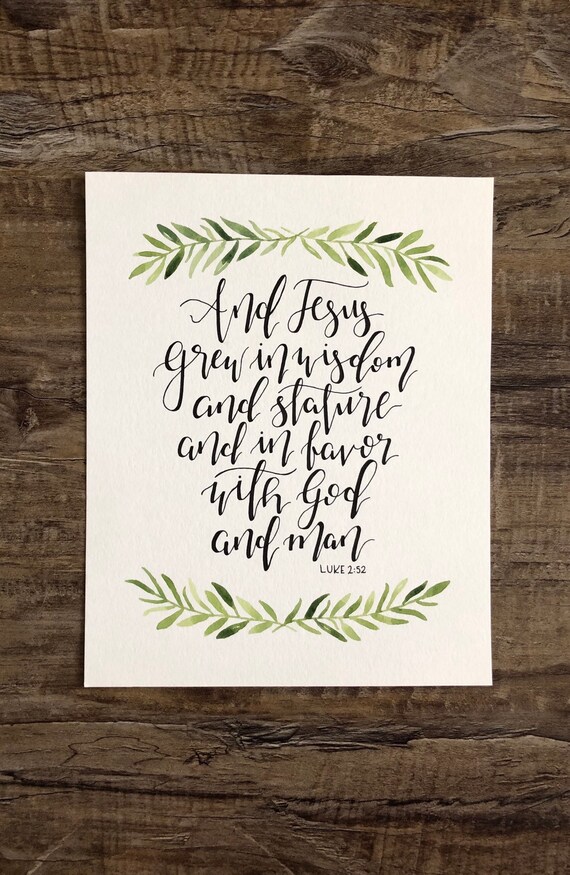 And Jesus
Grew in wisdom
and stature
and in favor
with God
and man
LUKE 2:52